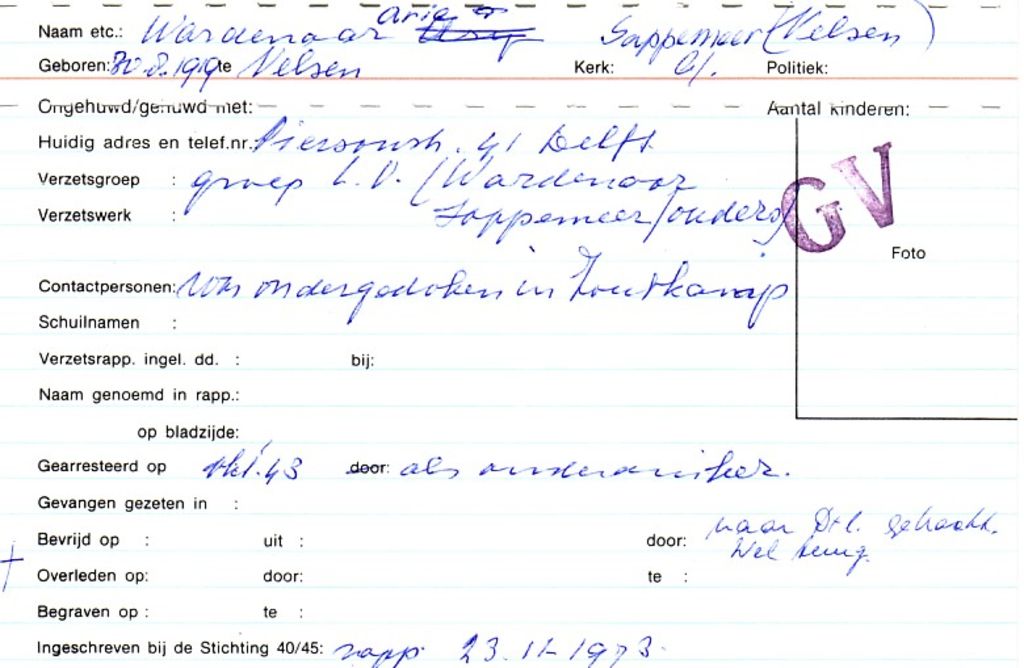 Naam etc.: Wardenaar Arie Sappemeer (Velsen)
Geboren: 30.8.1919 te Velsen Kerk: Politiek:
Ongehuwd/gehuwd met: Aantal kinderen:
Huidig adres en telef.nr.: Piersonstr. 41 Delft
Verzetsgroep : groep L.O. (Wardenaar
Verzetswerk : Sappemeer/ouders)
GV
Foto
Contactpersonen: was ondergedoken in Zoutkamp
Schuilnamen :
Verzetsrapp. ingel. dd. : bij:
Naam genoemd in rapp.:
op bladzijde:
Gearresteerd op okt. 43 door: als onderduiker.
Gevangen gezeten in :
Bevrijd op : uit : door: naar Dtl. gebracht.
Wel terug.
Overleden op: door: te :
Begraven op : te :
Ingeschreven bij de Stichting 40/45: rapp. 23.11-1973.